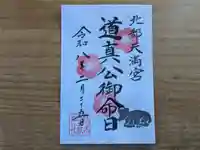 北野天満宮
道真公御命日
令和八年二月二十五日